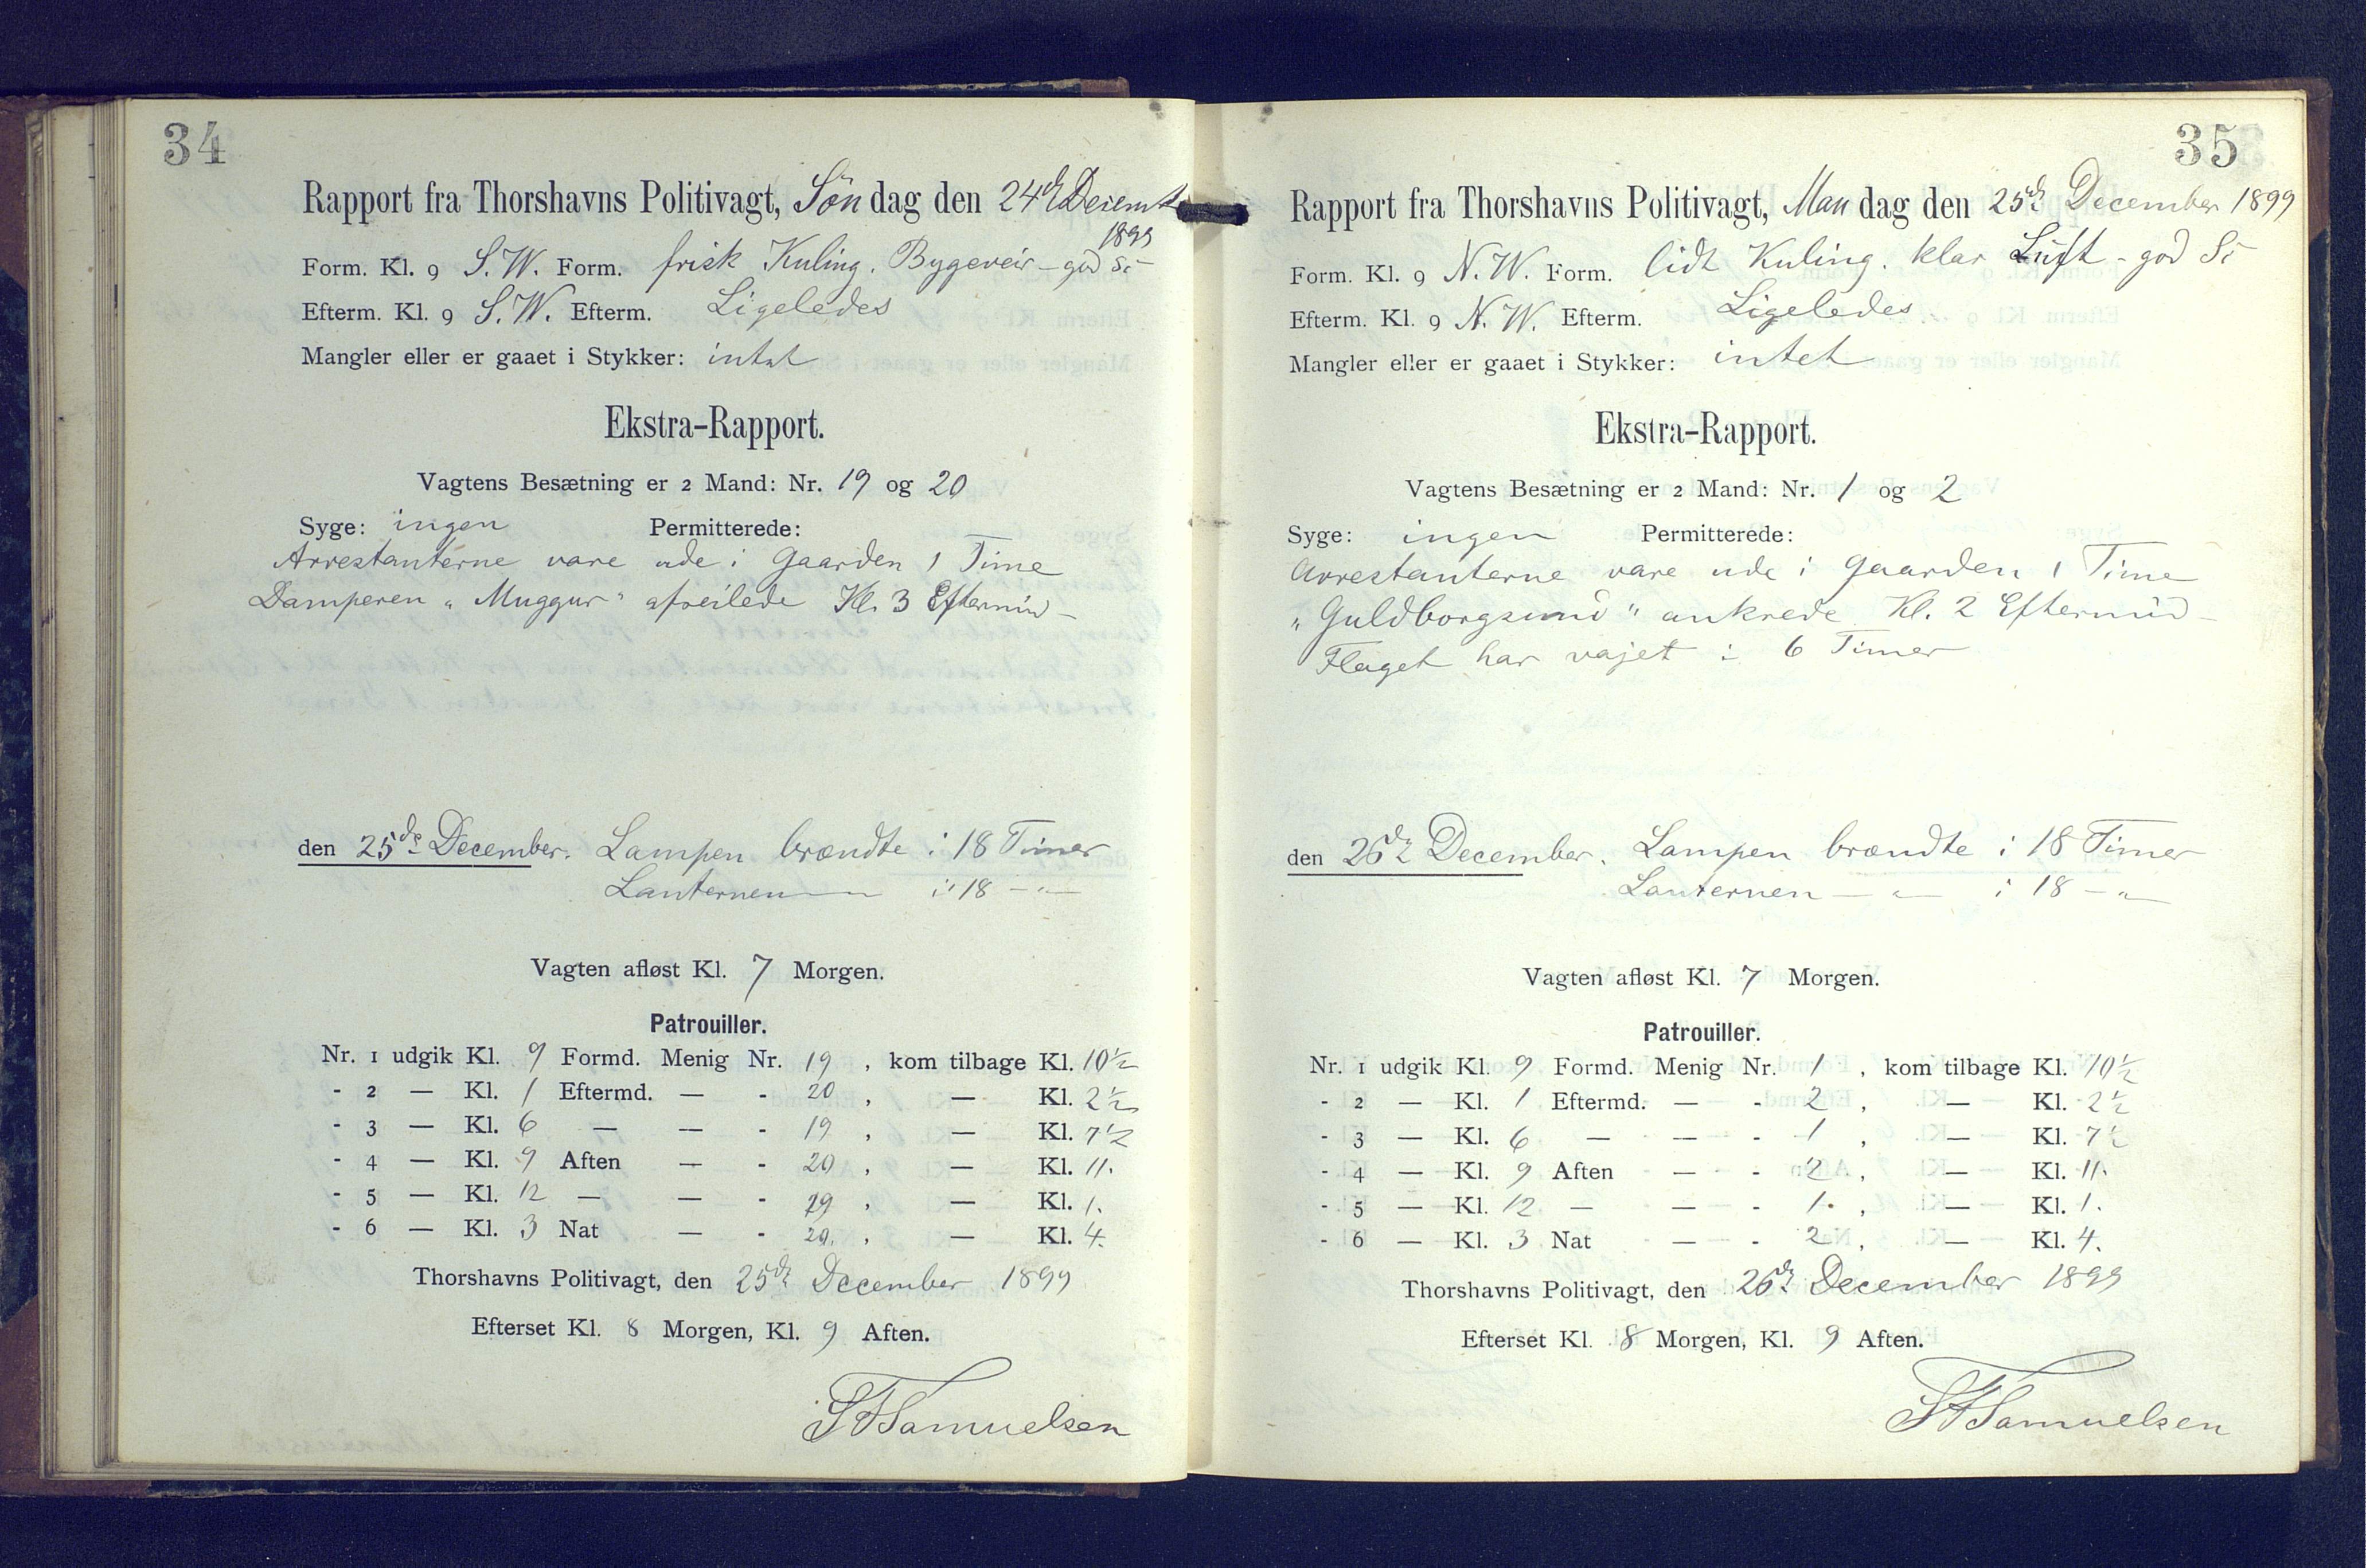 34
Rapport fra Thorshavns Politivagt, Søndag den 24de Decemb
1899
Form. Kl. 9 S.W. Form. frisk Kuling. Bygeveir - god Si-
Efterm. Kl. 9 S.W. Efterm. Ligeledes
Mangler eller er gaaet i Stykker: intet
Ekstra-Rapport.
Vagtens Besætning er 2 Mand: Nr. 19 og 20
Syge: ingen Permitterede:
Arrestanterne vare ude i Gaarden 1 Time
Damperen „Muggur“ afseilede Kl. 3 Eftermid-
den 25de December. Lampen brændte i 18 Timer
Lanternen — „ — i 18 - „ -
Vagten afløst Kl. 7 Morgen.
Patrouiller.
Nr. 1 udgik Kl. 9 Formd. Menig Nr. 19 , kom tilbage Kl. 10½
- 2 — Kl. 1 Eftermd. — - 20 , — Kl. 2½
- 3 — Kl. 6 — — - 19 , — Kl. 7½
- 4 — Kl. 9 Aften — - 20 , — Kl. 11.
- 5 — Kl. 12 — — - 19 , — Kl. 1.
- 6 — Kl. 3 Nat — - 20. , — Kl. 4.
Thorshavns Politivagt, den 25de December 1899
Efterset Kl. 8 Morgen, Kl. 9 Aften.
SFSamuelsen
35
Rapport fra Thorshavns Politivagt, Mandag den 25de December 1899
Form. Kl. 9 N.W. Form. lidt Kuling. klar Luft - god Si-
Efterm. Kl. 9 N.W. Efterm. Ligeledes
Mangler eller er gaaet i Stykker: intet
Ekstra-Rapport.
Vagtens Besætning er 2 Mand: Nr. 1 og 2
Syge: ingen Permitterede:
Arrestanterne vare ude i Gaarden 1 Time
„Guldborgsund“ ankrede Kl. 2 Eftermid-
Flaget har vajet i 6 Timer
den 26de December. Lampen brændte i 18 Timer
Lanternen — „ — i 18 - „ -
Vagten afløst Kl. 7 Morgen.
Patrouiller.
Nr. 1 udgik Kl. 9 Formd. Menig Nr. 1 , kom tilbage Kl. 10½
- 2 — Kl. 1 Eftermd. — - 2 , — Kl. 2½
- 3 — Kl. 6 — — - 1 , — Kl. 7½
- 4 — Kl. 9 Aften — - 2 , — Kl. 11.
- 5 — Kl. 12 — — - 1. , — Kl. 1.
- 6 — Kl. 3 Nat — - 2 , — Kl. 4.
Thorshavns Politivagt, den 26de December 1899
Efterset Kl. 8 Morgen, Kl. 9 Aften.
SFSamuelsen